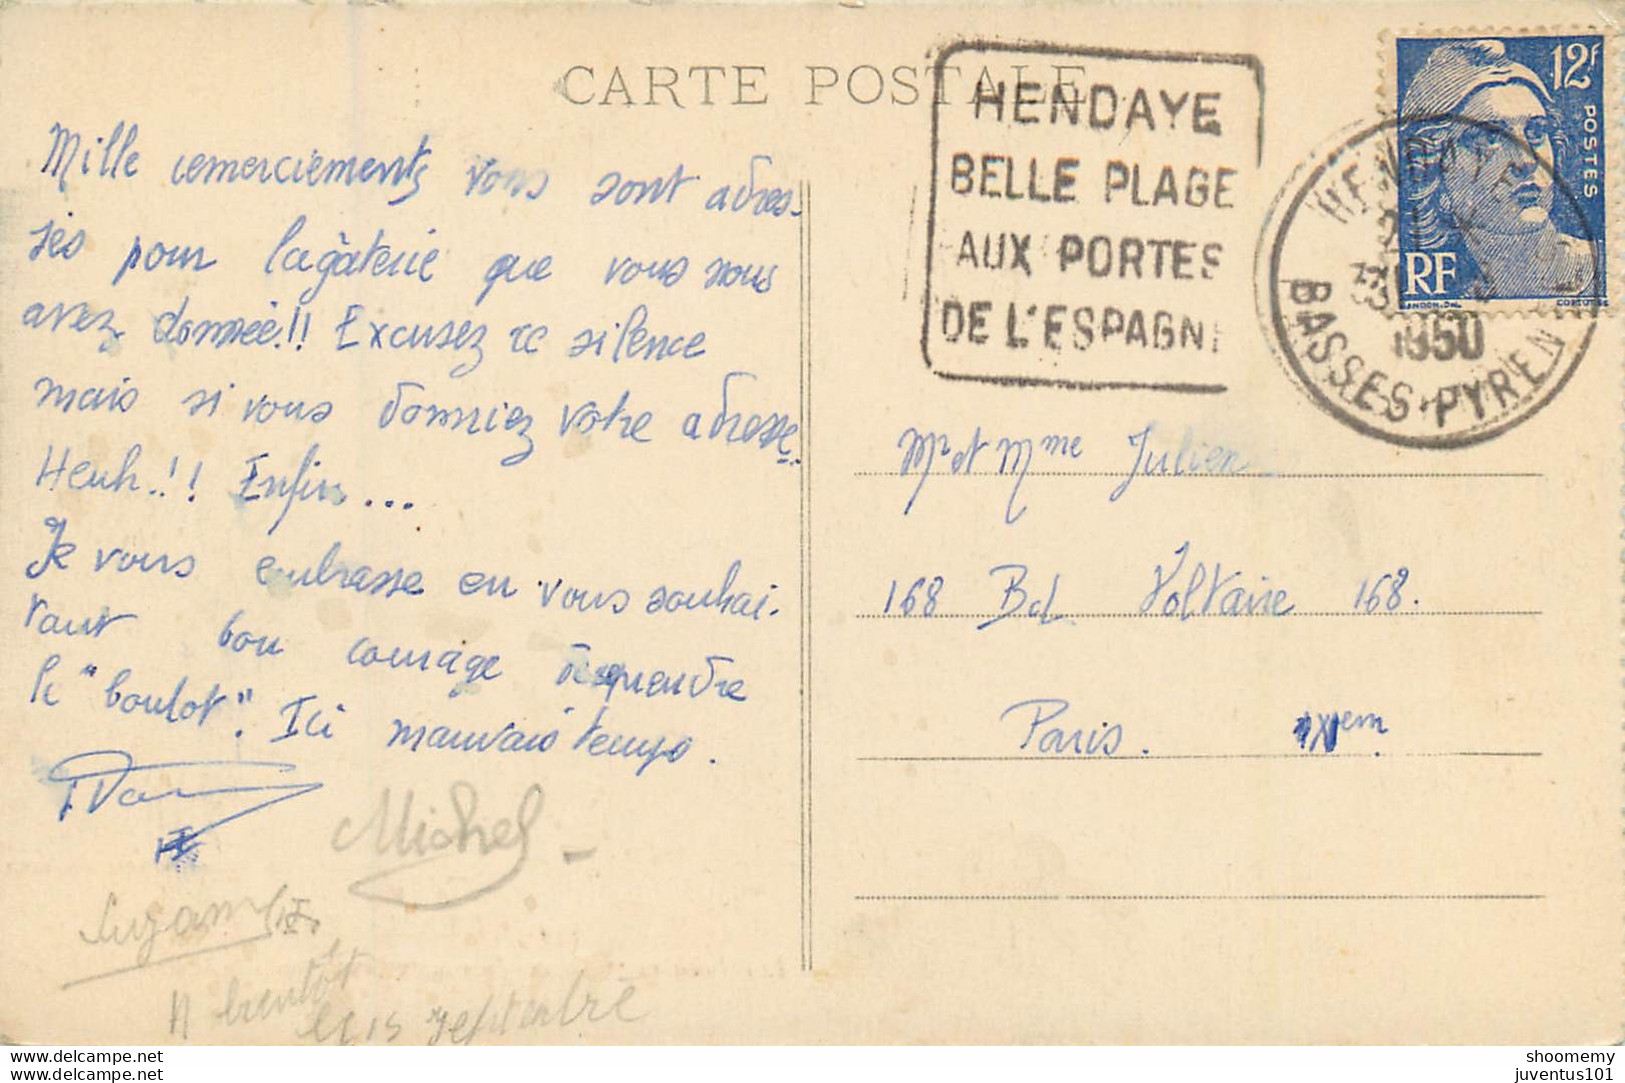 CARTE POSTALE
HENDAYE
BELLE PLAGE
AUX PORTES
DE L'ESPAGNE
12F
POSTES
RF
HENDAYE
1950
BASSES-PYREN
Mille remerciements vous sont adres-
sés pour la gâterie que vous nous
avez donnée!! Excusez ce silence
mais si vous donniez votre adresse.
Heuh..!! Enfin...
Je vous embrasse en vous souhai-
tant bon courage à reprendre
le "boulot". Ici mauvais temps.
Michel
A bientôt
le 15 septembre
Mr et Mme Julien
168 Bd Voltaire 168.
Paris. XIem
shoomemy
juventus101